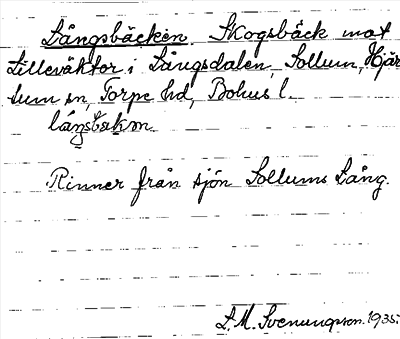 Långsbäcken. Skogsbäck mot
Lilleväktor i Långsdalen, Sollum, Hjär
tum sn, Torpe hd, Bohus l.
låŋsbækɷn.
Rinner från sjön Sollums Lång.
L.M. Svenungson. 1935.